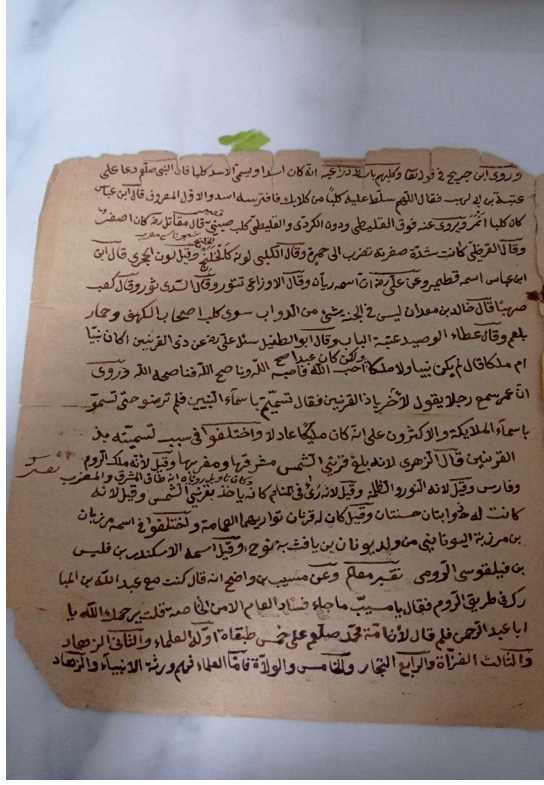 وروى ابن جريج في قوله تعا وكلبهم باسط ذراعيه انه كان اسدا ويسمى الاسد كلبا فان النبي صلعم دعا على
عتبة بن ابي لهب فقال اللهم سلط عليه كلبا من كلابك فافترسه اسد والاول المعروف قال ابن عباس
كان كلبا انمر ويروى عنه فوق القلطي ودون الكردي والقلطي كلب صيني قال مقاتل كان اصفر
وقال القرظي كانت شدة صفرته تضرب الى حمرة وقال الكلبي لونه كالخلنج وقيل لون الحجري قال ابن
ابن عباس اسمه قطمير وعن علي رضه ان اسمه ريان وقال الاوزاعي تتور وقال السدي ثور وقال كعب
صهبا قال خالد بن معدان ليس في الجنة شيء من الدواب سوى كلب اصحاب الكهف وحمار
بلعم وقال عطاء الوصيد عتبة الباب وقال ابو الطفيل سئل علي رضه عن ذي القرنين اكان نبيا
ام ملكا قال لم يكن نبيا ولا ملكا ولكن كان عبدا صالح احب الله فاحبه الله وناصح الله فناصحه الله وروى
ان عمر سمع رجلا يقول لآخر يا ذا القرنين فقال تسميتم باسماء النبيين فلم ترضو حتى تسمو
باسماء الملايكة والاكثرون على انه كان ملكا عادلا واختلفوا في سبب تسميته بذ
القرنين قال الزهري لانه بلغ قرني الشمس مشرقها ومغربها وقيل لأنه ملك الروم
وفارس وقيل لانه دخل النور والظلمة وقيل لانه رئى في المنام كانه ياخذ بقرني الشمس وقيل لانه
وكان تاويل رؤياه انه طاق المشرق والمغرب
كانت له ذوابتان حسنتان وقيل كان له قرنان تواريهما العمامة واختلفوا في اسمه مرزبان
بن مرزبة اليوناني من ولد يونان بن يافث بن نوح وقيل اسمه الاسكندر بن فليس
بن فيلقوس الرومي تفسير معالم وعن مسيب بن واضح انه قال كنت مع عبد الله بن المبا
رك في طريق الروم فقال يا مسيب ما جاء فساد العام الا من الخاصة قلت يرحمك الله يا
ابا عبد الرحمن فلم قال لأن امة محمد صلعم على خمس طبقات اوله العلماء والثاني الزهاد
والثالث الغزاة والرابع التجار والخامس الولاة فاما العلماء فهم ورثة الانبياء والزهاد